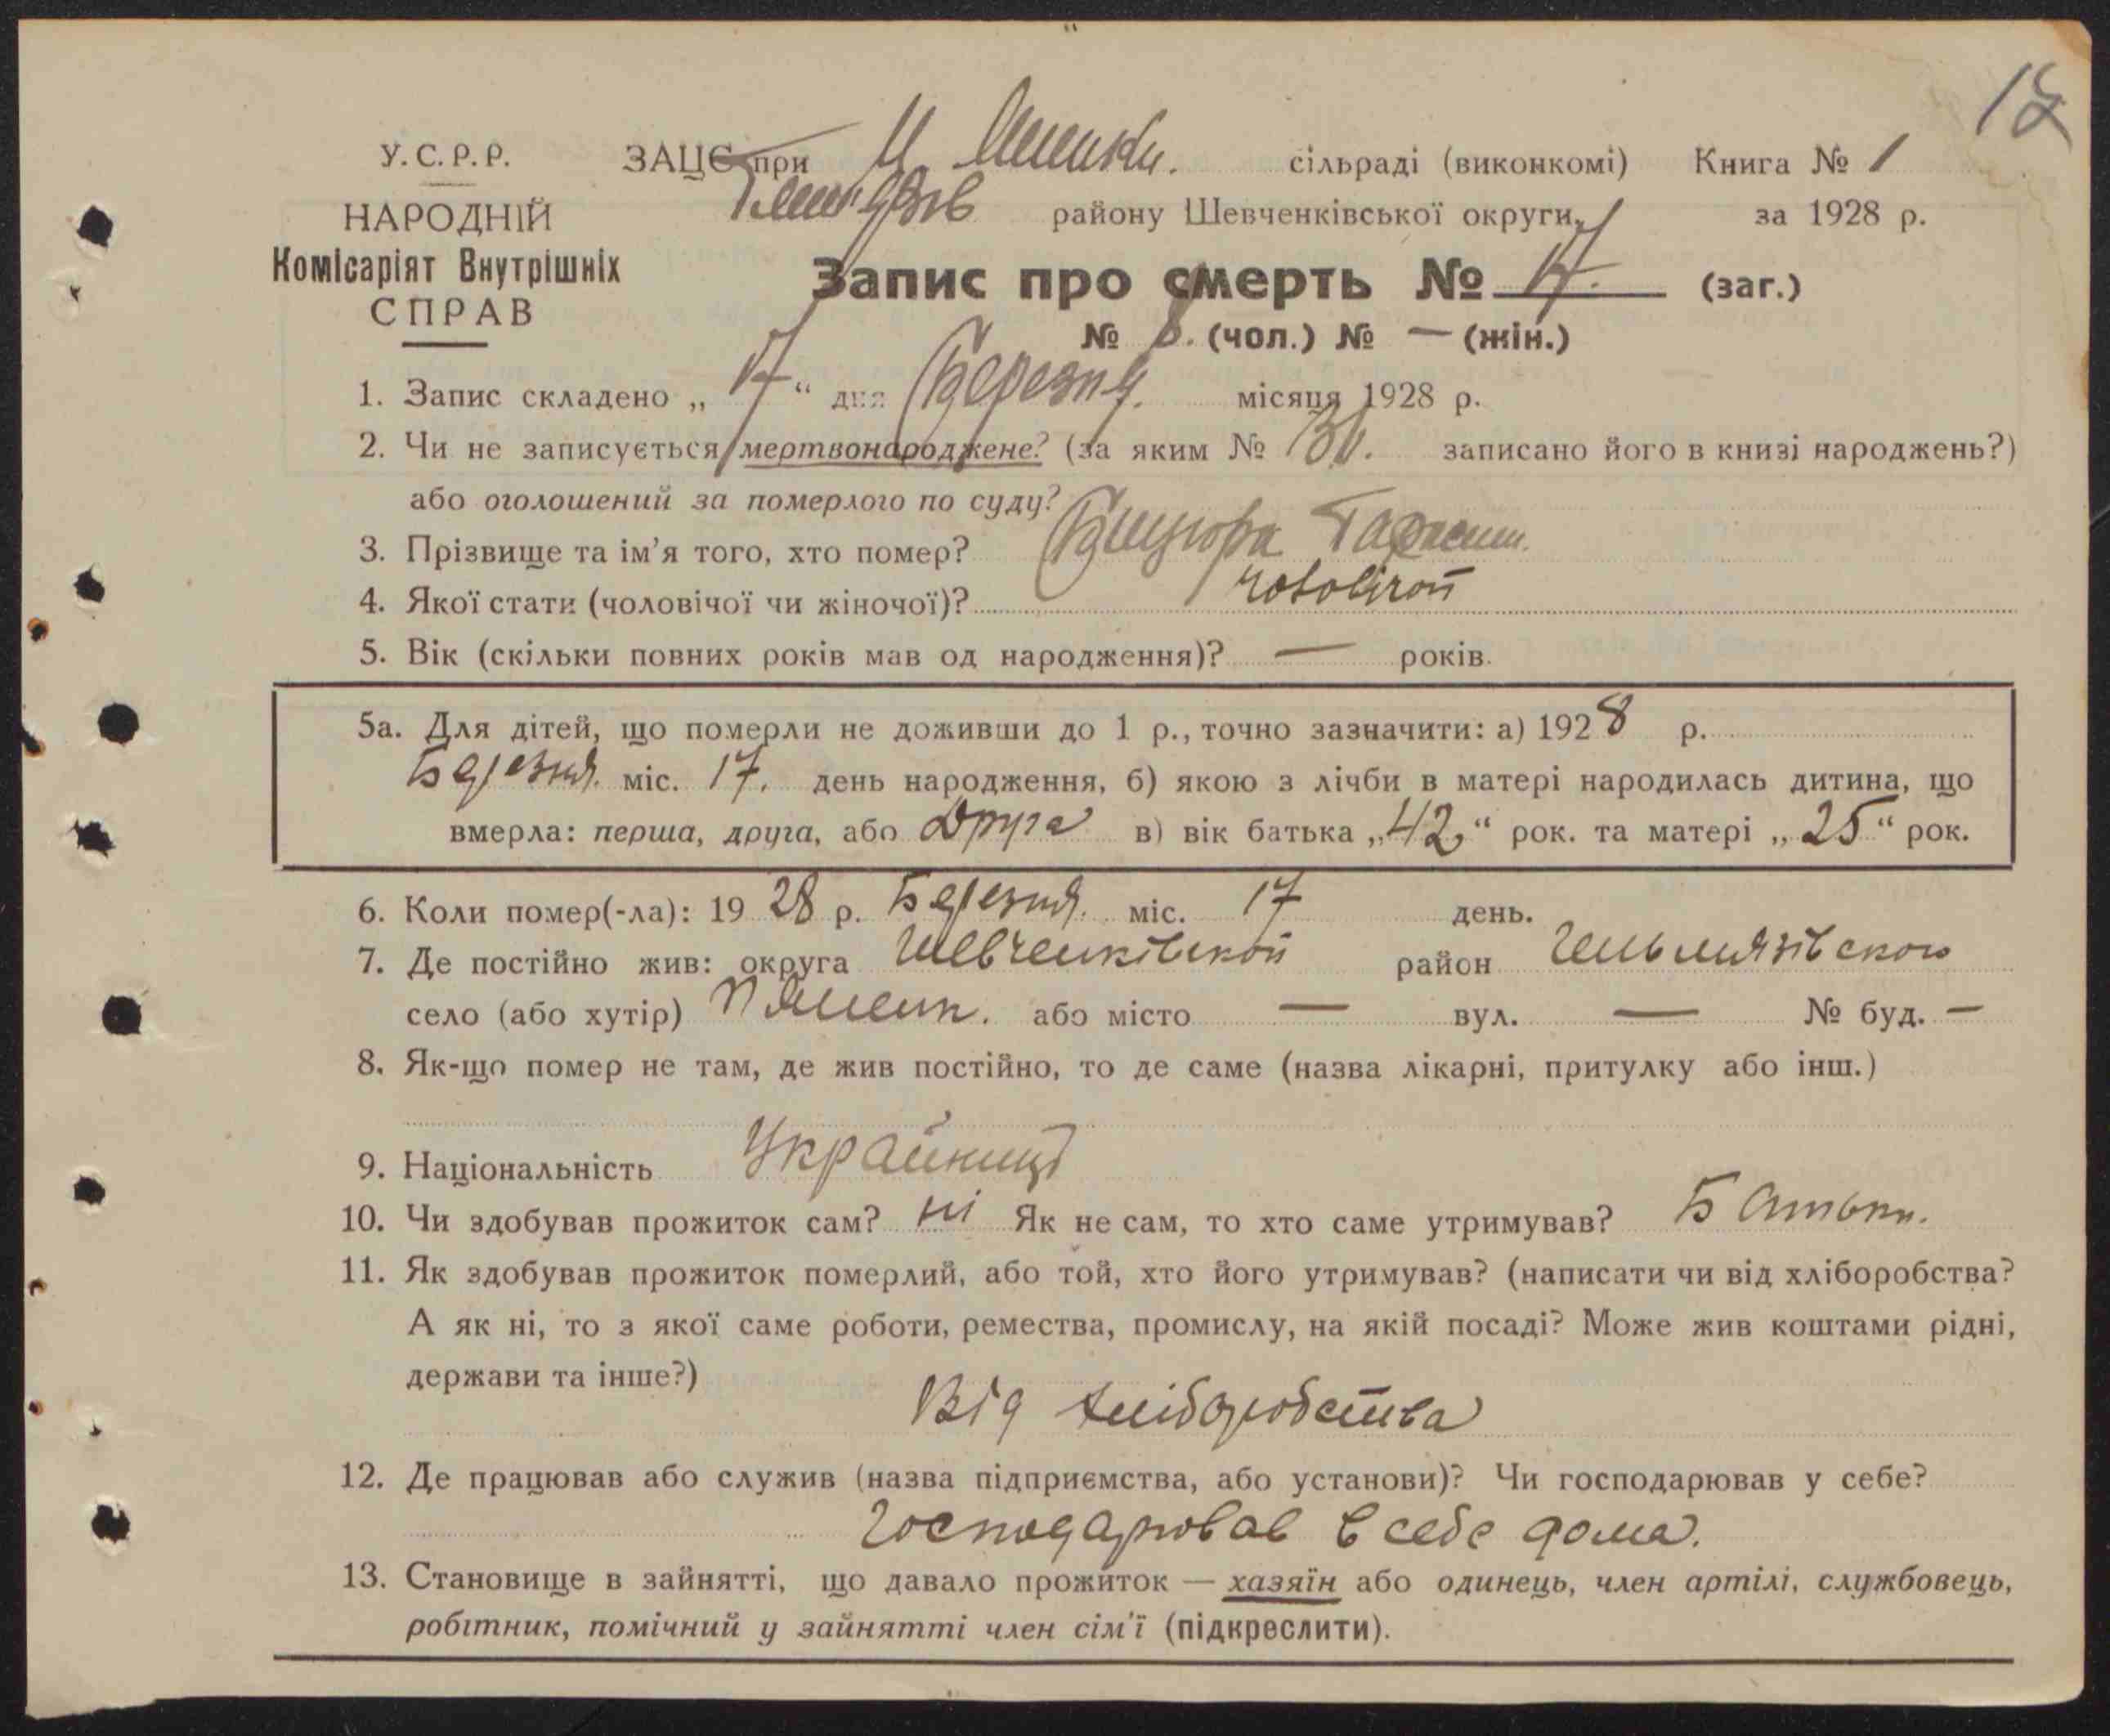 17
У.С.Р.Р. ЗАЦС при сільраді (виконкомі) Книга № 1
НАРОДНІЙ району Шевченківської округи. за 1928 р.
Комісаріят Внутрішніх
СПРАВ
Запис про смерть № 17. (заг.)
№ 8. (чол.) № — (жін.)
1. Запис складено „17“ дня Березня. місяця 1928 р.
2. Чи не записується мертвонароджене? (за яким № записано його в книзі народжень?)
або оголошений за померлого по суду?
3. Прізвище та ім'я того, хто помер?
4. Якої стати (чоловічої чи жіночої)? чоловічой
5. Вік (скільки повних років мав од народження)? — років.
5а. Для дітей, що померли не доживши до 1 р., точно зазначити: а) 1928 р.
Березня. міс. 17. день народження, б) якою з лічби в матері народилась дитина, що
вмерла: перша, друга, або Друга в) вік батька „42“ рок. та матері „25“ рок.
6. Коли помер(-ла): 1928 р. Березня. міс. 17 день.
7. Де постійно жив: округа Шевченківской район Гельмязівского
село (або хутір) або місто — вул. — № буд. —
8. Як-що помер не там, де жив постійно, то де саме (назва лікарні, притулку або інш.)
9. Національність Україниць
10. Чи здобував прожиток сам? ні Як не сам, то хто саме утримував? Батьки.
11. Як здобував прожиток померлий, або той, хто його утримував? (написати чи від хліборобства?
А як ні, то з якої саме роботи, ремества, промислу, на якій посаді? Може жив коштами рідні,
держави та інше?)
Від хліборобства
12. Де працював або служив (назва підприємства, або установи)? Чи господарював у себе?
Господаровав в себе дома.
13. Становище в зайнятті, що давало прожиток — хазяїн або одинець, член артілі, службовець,
робітник, помічний у зайнятті член сім'ї (підкреслити).